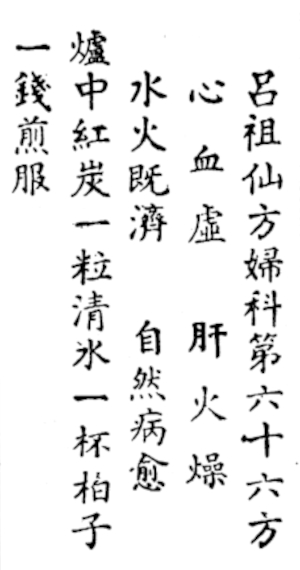 呂祖仙方婦科第六十六方
心血虛 肝火燥
水火既濟 自然病愈
爐中紅炭一粒清氷一杯柏子
一錢煎服